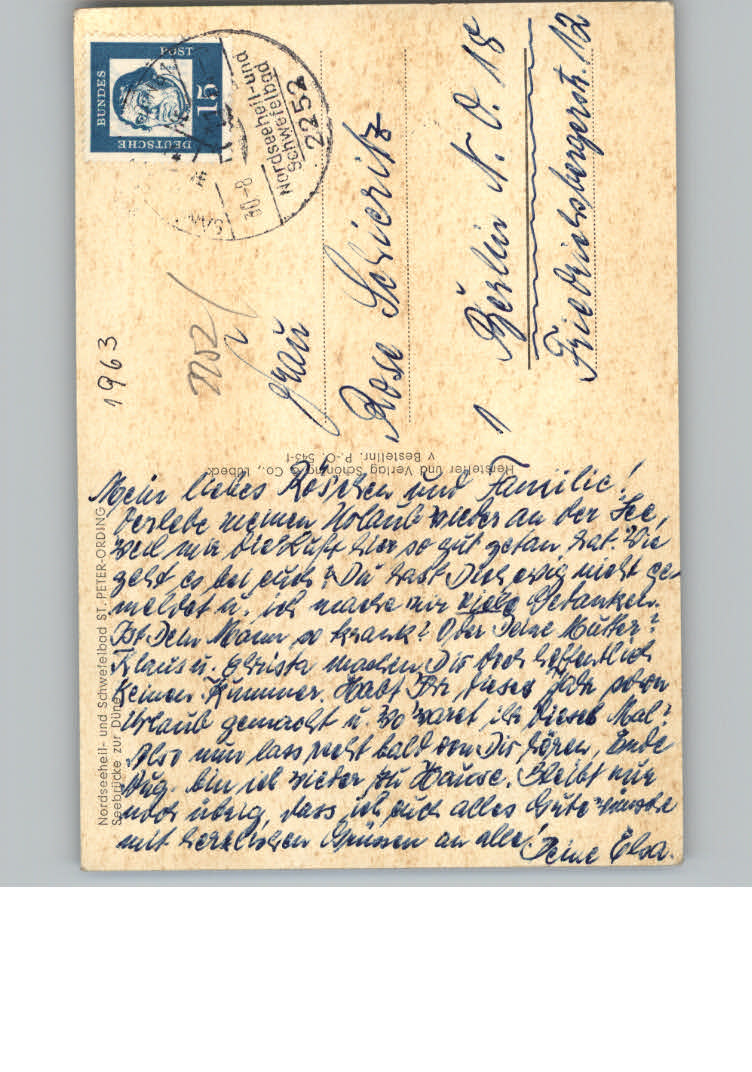 Mein liebes Röschen und Familie!
Verlebe meinen Urlaub wieder an der See,
weil mir die Luft hier so gut getan hat. Wie
geht es bei euch? Du hast Dich ewig nicht ge-
meldet u. ich mache mir viele Gedanken.
Ist Dein Mann so krank? Oder Deine Mutter?
Klaus u. Christa machen Dir doch hoffentlich
keinen Kummer. Habt Ihr dieses Jahr schon
Urlaub gemacht u. wo waret ihr dieses Mal?
Also nun lass recht bald von Dir hören, Ende
Aug. bin ich wieder zu Hause. Bleibt nur
noch übrig, dass ich euch alles Gute wünsche
mit herzlichen Grüssen an alle!
Deine Elsa.
Nordseeheil- und Schwefelbad ST. PETER-ORDING
Seebrücke zur Düne
Hersteller und Verlag Schöning & Co., Lübeck
v Bestellnr. P.-O. 543-f
1963
2252
Frau
Rose Schieritz
1 Berlin N. O. 18
Friedrichsbergerstr. 12
DEUTSCHE
BUNDES
POST
15
Nordseeheil-und
Schwefelbad
2252